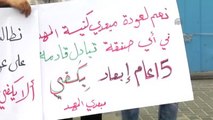 نعم لعودة مبعدي كنيسة المهد
في أي صفقة تبادل قادمة
15 عام إبعاد يكفي
مبعدي المهد
نطالب
على
ألا يكفي